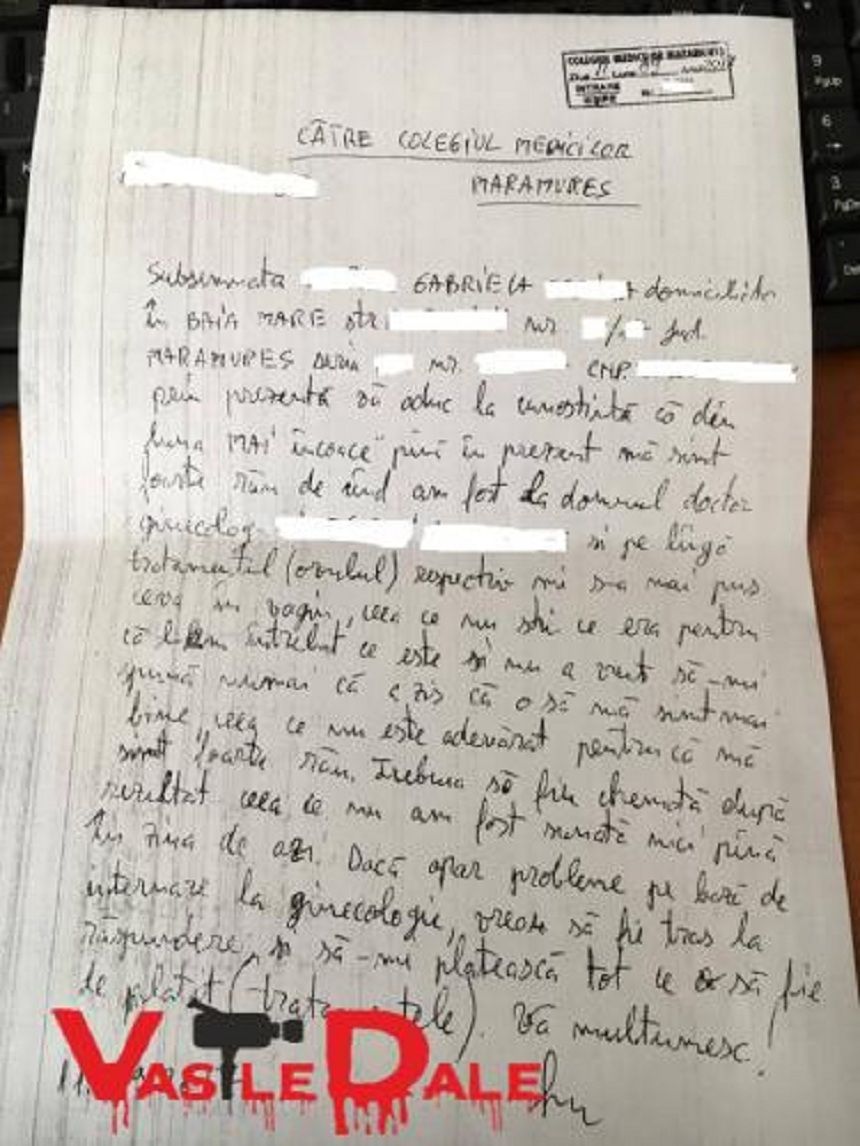 COLEGIUL MEDICILOR MARAMURES
INTRARE
CĂTRE COLEGIUL MEDICILOR
MARAMURES
Subsemnata GABRIELA domiciliata
în BAIA MARE str nr / jud.
MARAMURES seria nr. CNP.
prin prezenta vă aduc la cunostintă că din
luna MAI încoace pînă în prezent mă simt
foarte rău de cînd am fost la domnul doctor
ginecolog si pe lîngă
tratamentul (ovulul) respectiv mi s-a mai pus
ceva în vagin, ceea ce nu stiu ce era pentru
că l-am întrebat ce este si nu a vrut să-mi
spună numai că a zis că o să mă simt mai
bine, ceea ce nu este adevărat pentru că mă
simt foarte rău. Trebuia să fiu chemată după
rezultat ceea ce nu am fost sunată nici pînă
în ziua de azi. Dacă apar probleme pe bază de
internare la ginecologie, vreau să fie tras la
răspundere, si să-mi platească tot ce o să fie
de platit (tratamentele). Vă multumesc.
11.
VASILE DALE
9
PgUp
6
3
PgDn